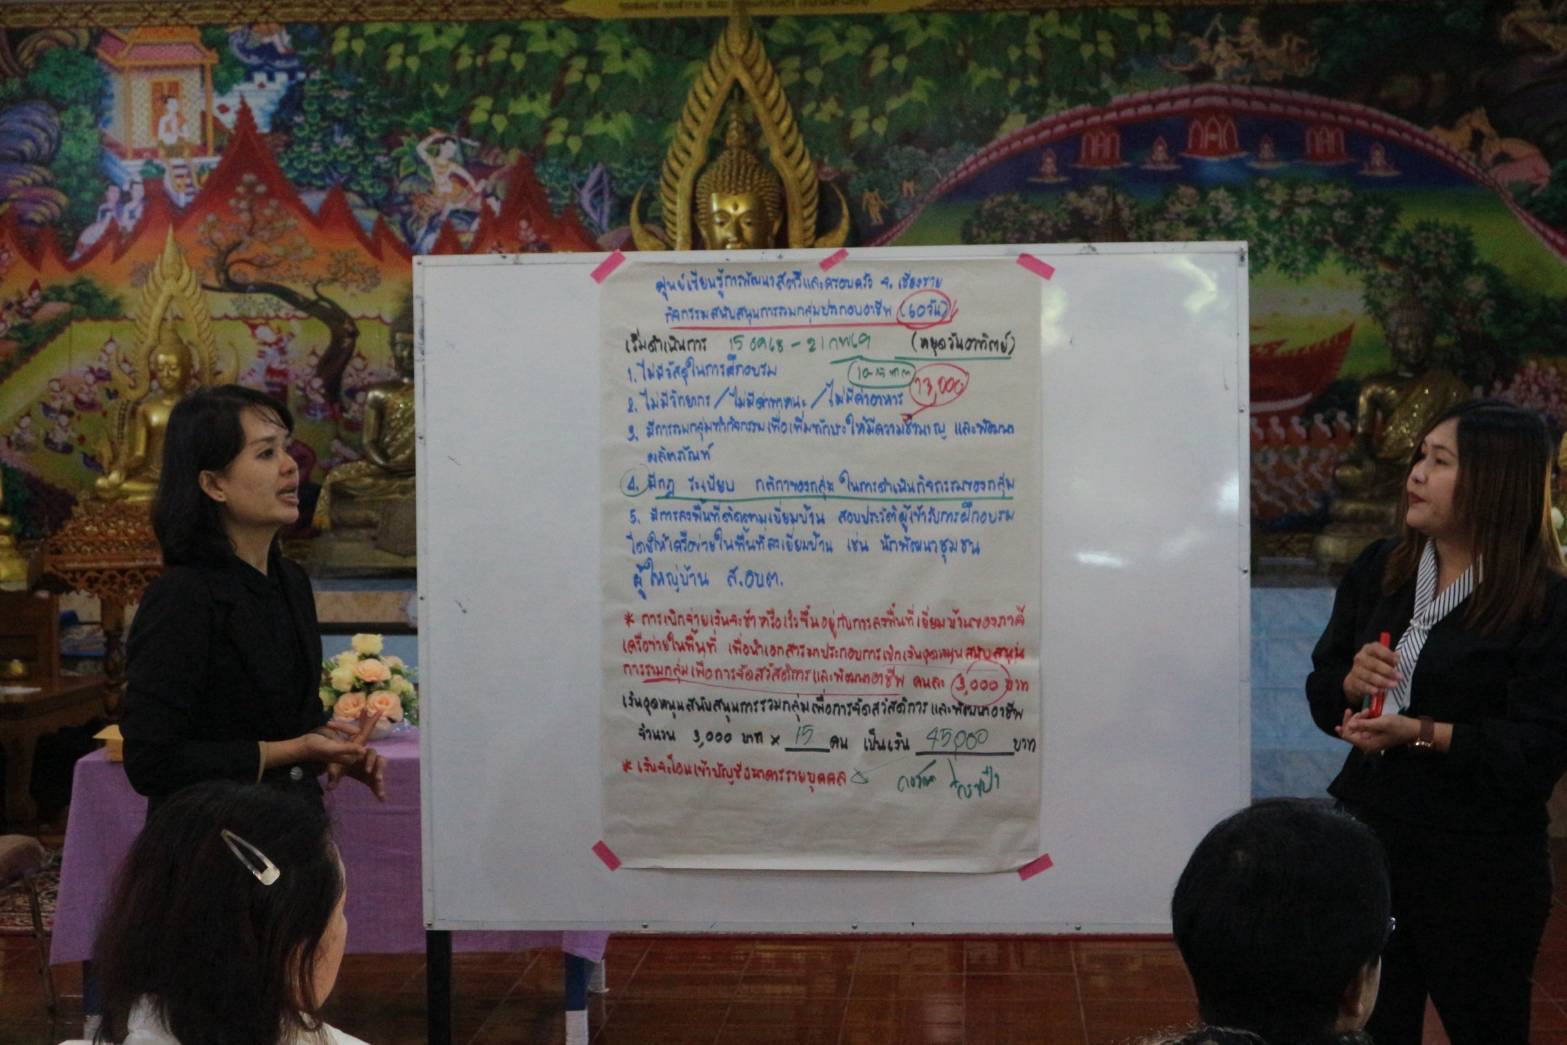 ศูนย์เรียนรู้การพัฒนาสตรีและครอบครัว จ. เชียงราย
กิจกรรมสนับสนุนการรวมกลุ่มประกอบอาชีพ (60วัน)
เริ่มดำเนินการ 15 ธค68 - 21 กพ69 (หยุดวันอาทิตย์)
1. ไม่มีวัสดุในการฝึกอบรม
3,000
2. ไม่มีวิทยากร / ไม่มีค่าพาหนะ / ไม่มีค่าอาหาร
3. มีการรวมกลุ่มทำกิจกรรมเพื่อเพิ่มทักษะให้มีความชำนาญ และพัฒนา
ผลิตภัณฑ์
4. มีกฎ ระเบียบ กติกาของกลุ่ม ในการดำเนินกิจกรรมของกลุ่ม
5. มีการลงพื้นที่ติดตามเยี่ยมบ้าน สอบประวัติผู้เข้ารับการฝึกอบรม
โดยให้เครือข่ายในพื้นที่ลงเยี่ยมบ้าน เช่น นักพัฒนาชุมชน
ผู้ใหญ่บ้าน ส.อบต.
* การเบิกจ่ายเงินจะช้าหรือเร็วขึ้นอยู่กับการลงพื้นที่เยี่ยมบ้านของภาคี
เครือข่ายในพื้นที่ เพื่อนำเอกสารมาประกอบการเบิกเงินอุดหนุนสนับสนุน
การรวมกลุ่มเพื่อการจัดสวัสดิการและพัฒนาอาชีพ คนละ 3,000 บาท
เงินอุดหนุนสนับสนุนการรวมกลุ่มเพื่อการจัดสวัสดิการและพัฒนาอาชีพ
จำนวน 3,000 บาท x 15 คน เป็นเงิน 45,000 บาท
* เงินจะโอนเข้าบัญชีธนาคารรายบุคคล